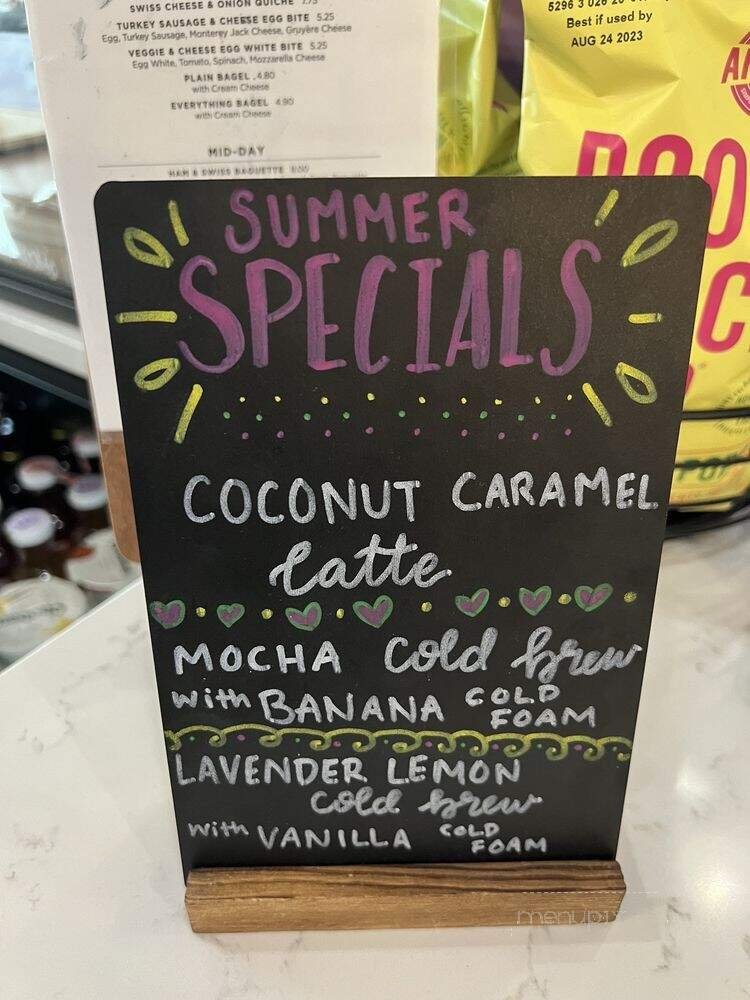 SWISS CHEESE & ONION QUICHE 7.75
TURKEY SAUSAGE & CHEESE EGG BITE 5.25
Egg, Turkey Sausage, Monterey Jack Cheese, Gruyère Cheese
VEGGIE & CHEESE EGG WHITE BITE 5.25
Egg White, Tomato, Spinach, Mozzarella Cheese
PLAIN BAGEL 4.80
with Cream Cheese
EVERYTHING BAGEL 4.90
with Cream Cheese
MID-DAY
HAM & SWISS BAGUETTE
Best if used by
AUG 24 2023
SUMMER
SPECIALS
COCONUT CARAMEL
latte
MOCHA cold brew
with BANANA COLD
FOAM
LAVENDER LEMON
cold brew
with VANILLA COLD
FOAM